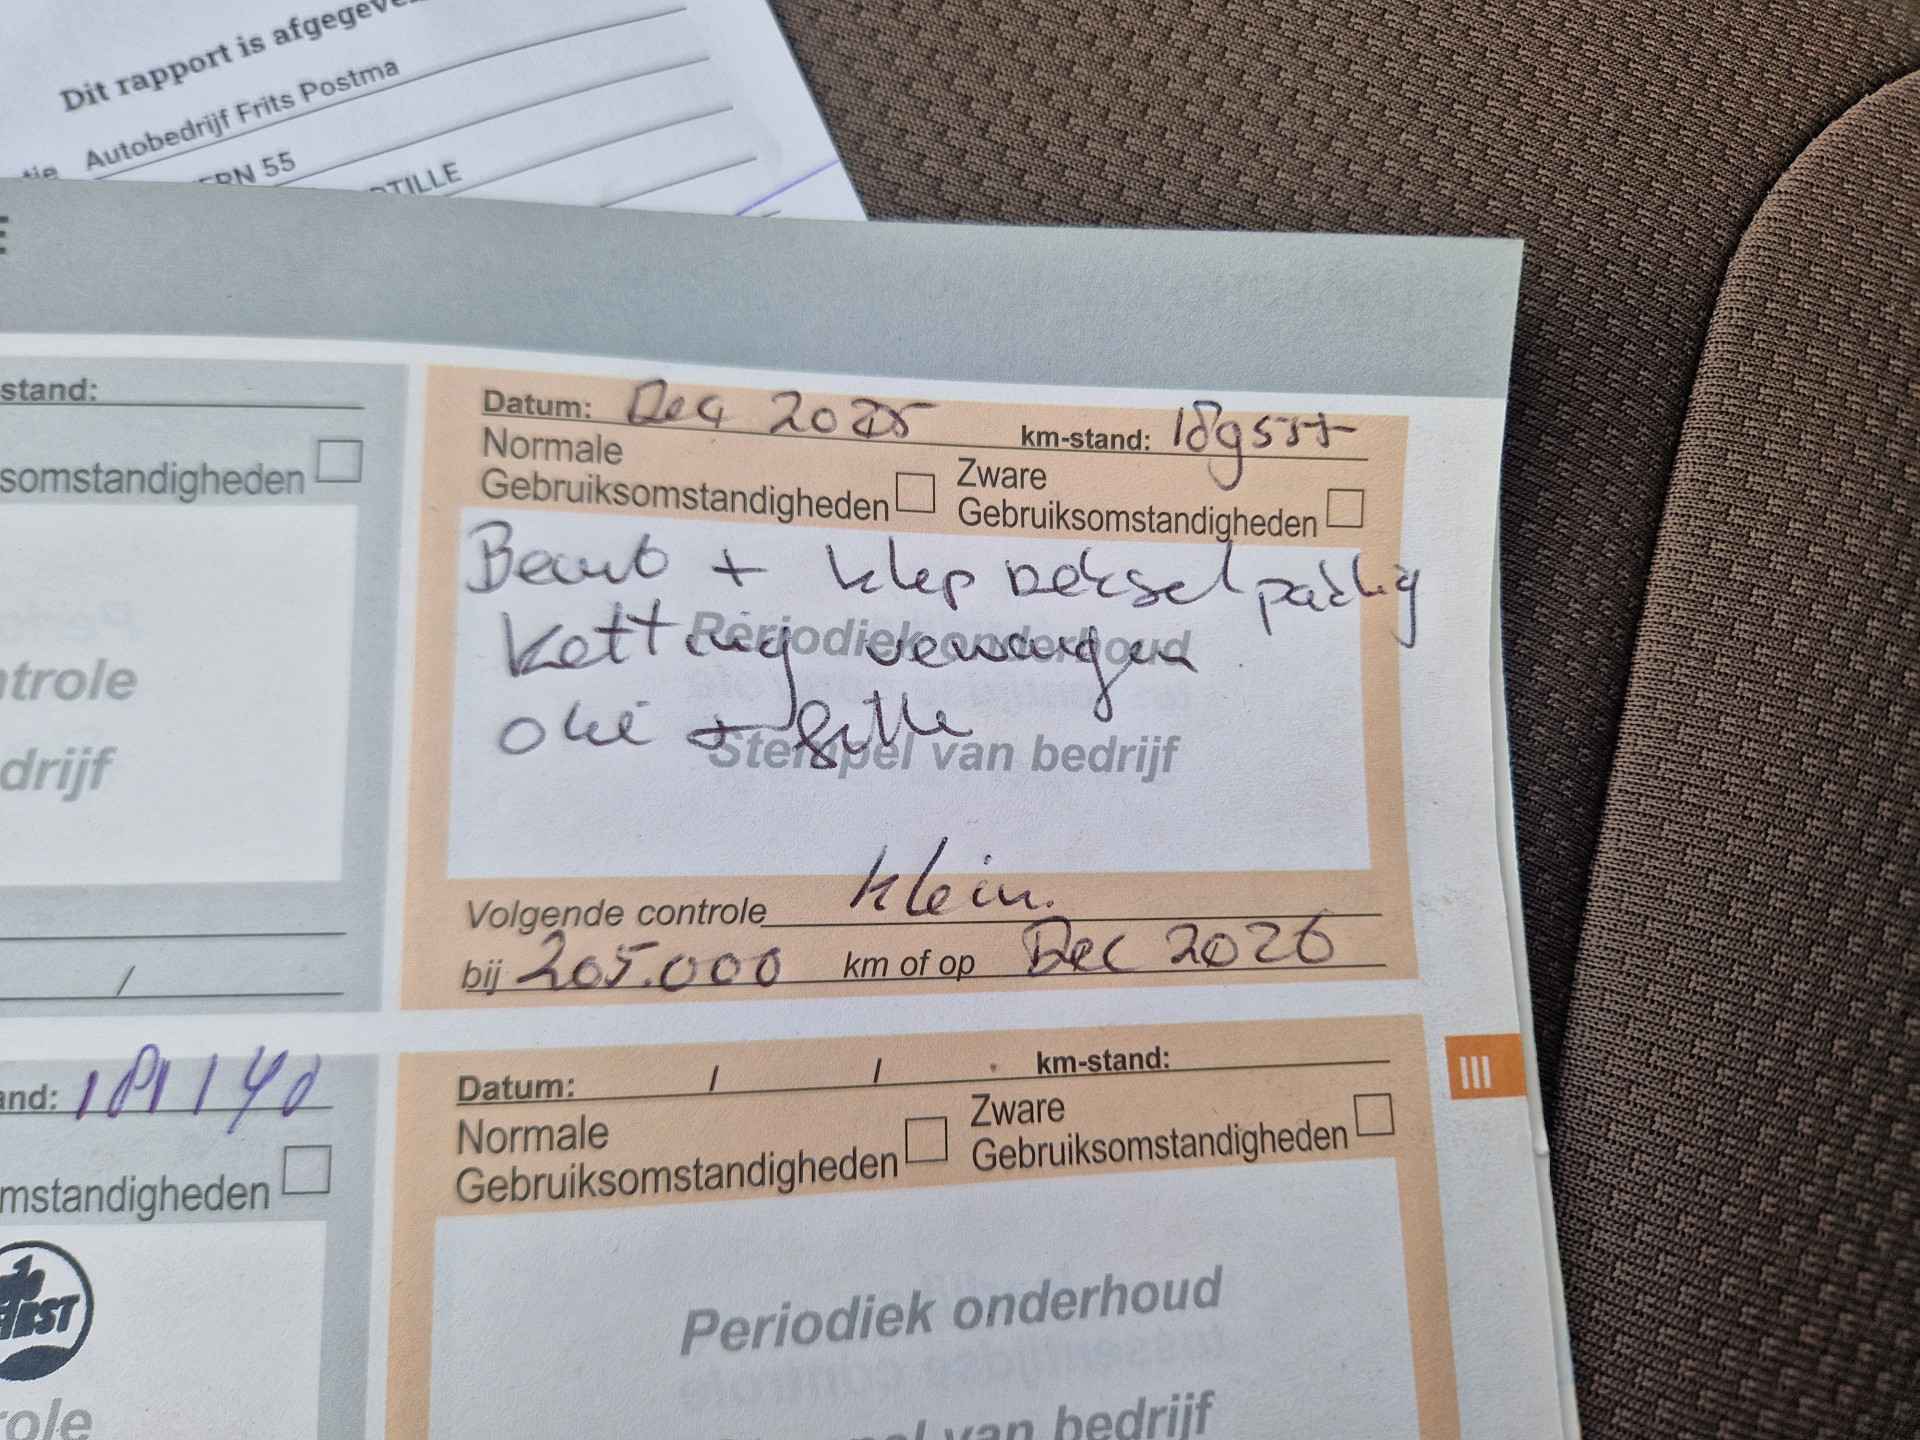 Dit rapport is afgegeve
tie Autobedrijf Frits Postma
ERN 55
TILLE
E
stand:
somstandigheden
ntrole
drijf
/
Datum: Dec 2025 km-stand:
Normale
Gebruiksomstandigheden
Zware
Gebruiksomstandigheden
+ klep deksel
Periodiek onderhoud
ketting vervangen
olie +
Stempel van bedrijf
Volgende controle klein.
bij 205.000 km of op Dec 2026
and: 181140
mstandigheden
role
Datum: / / km-stand:
Normale
Gebruiksomstandigheden
Zware
Gebruiksomstandigheden
Periodiek onderhoud
van bedrijf
III